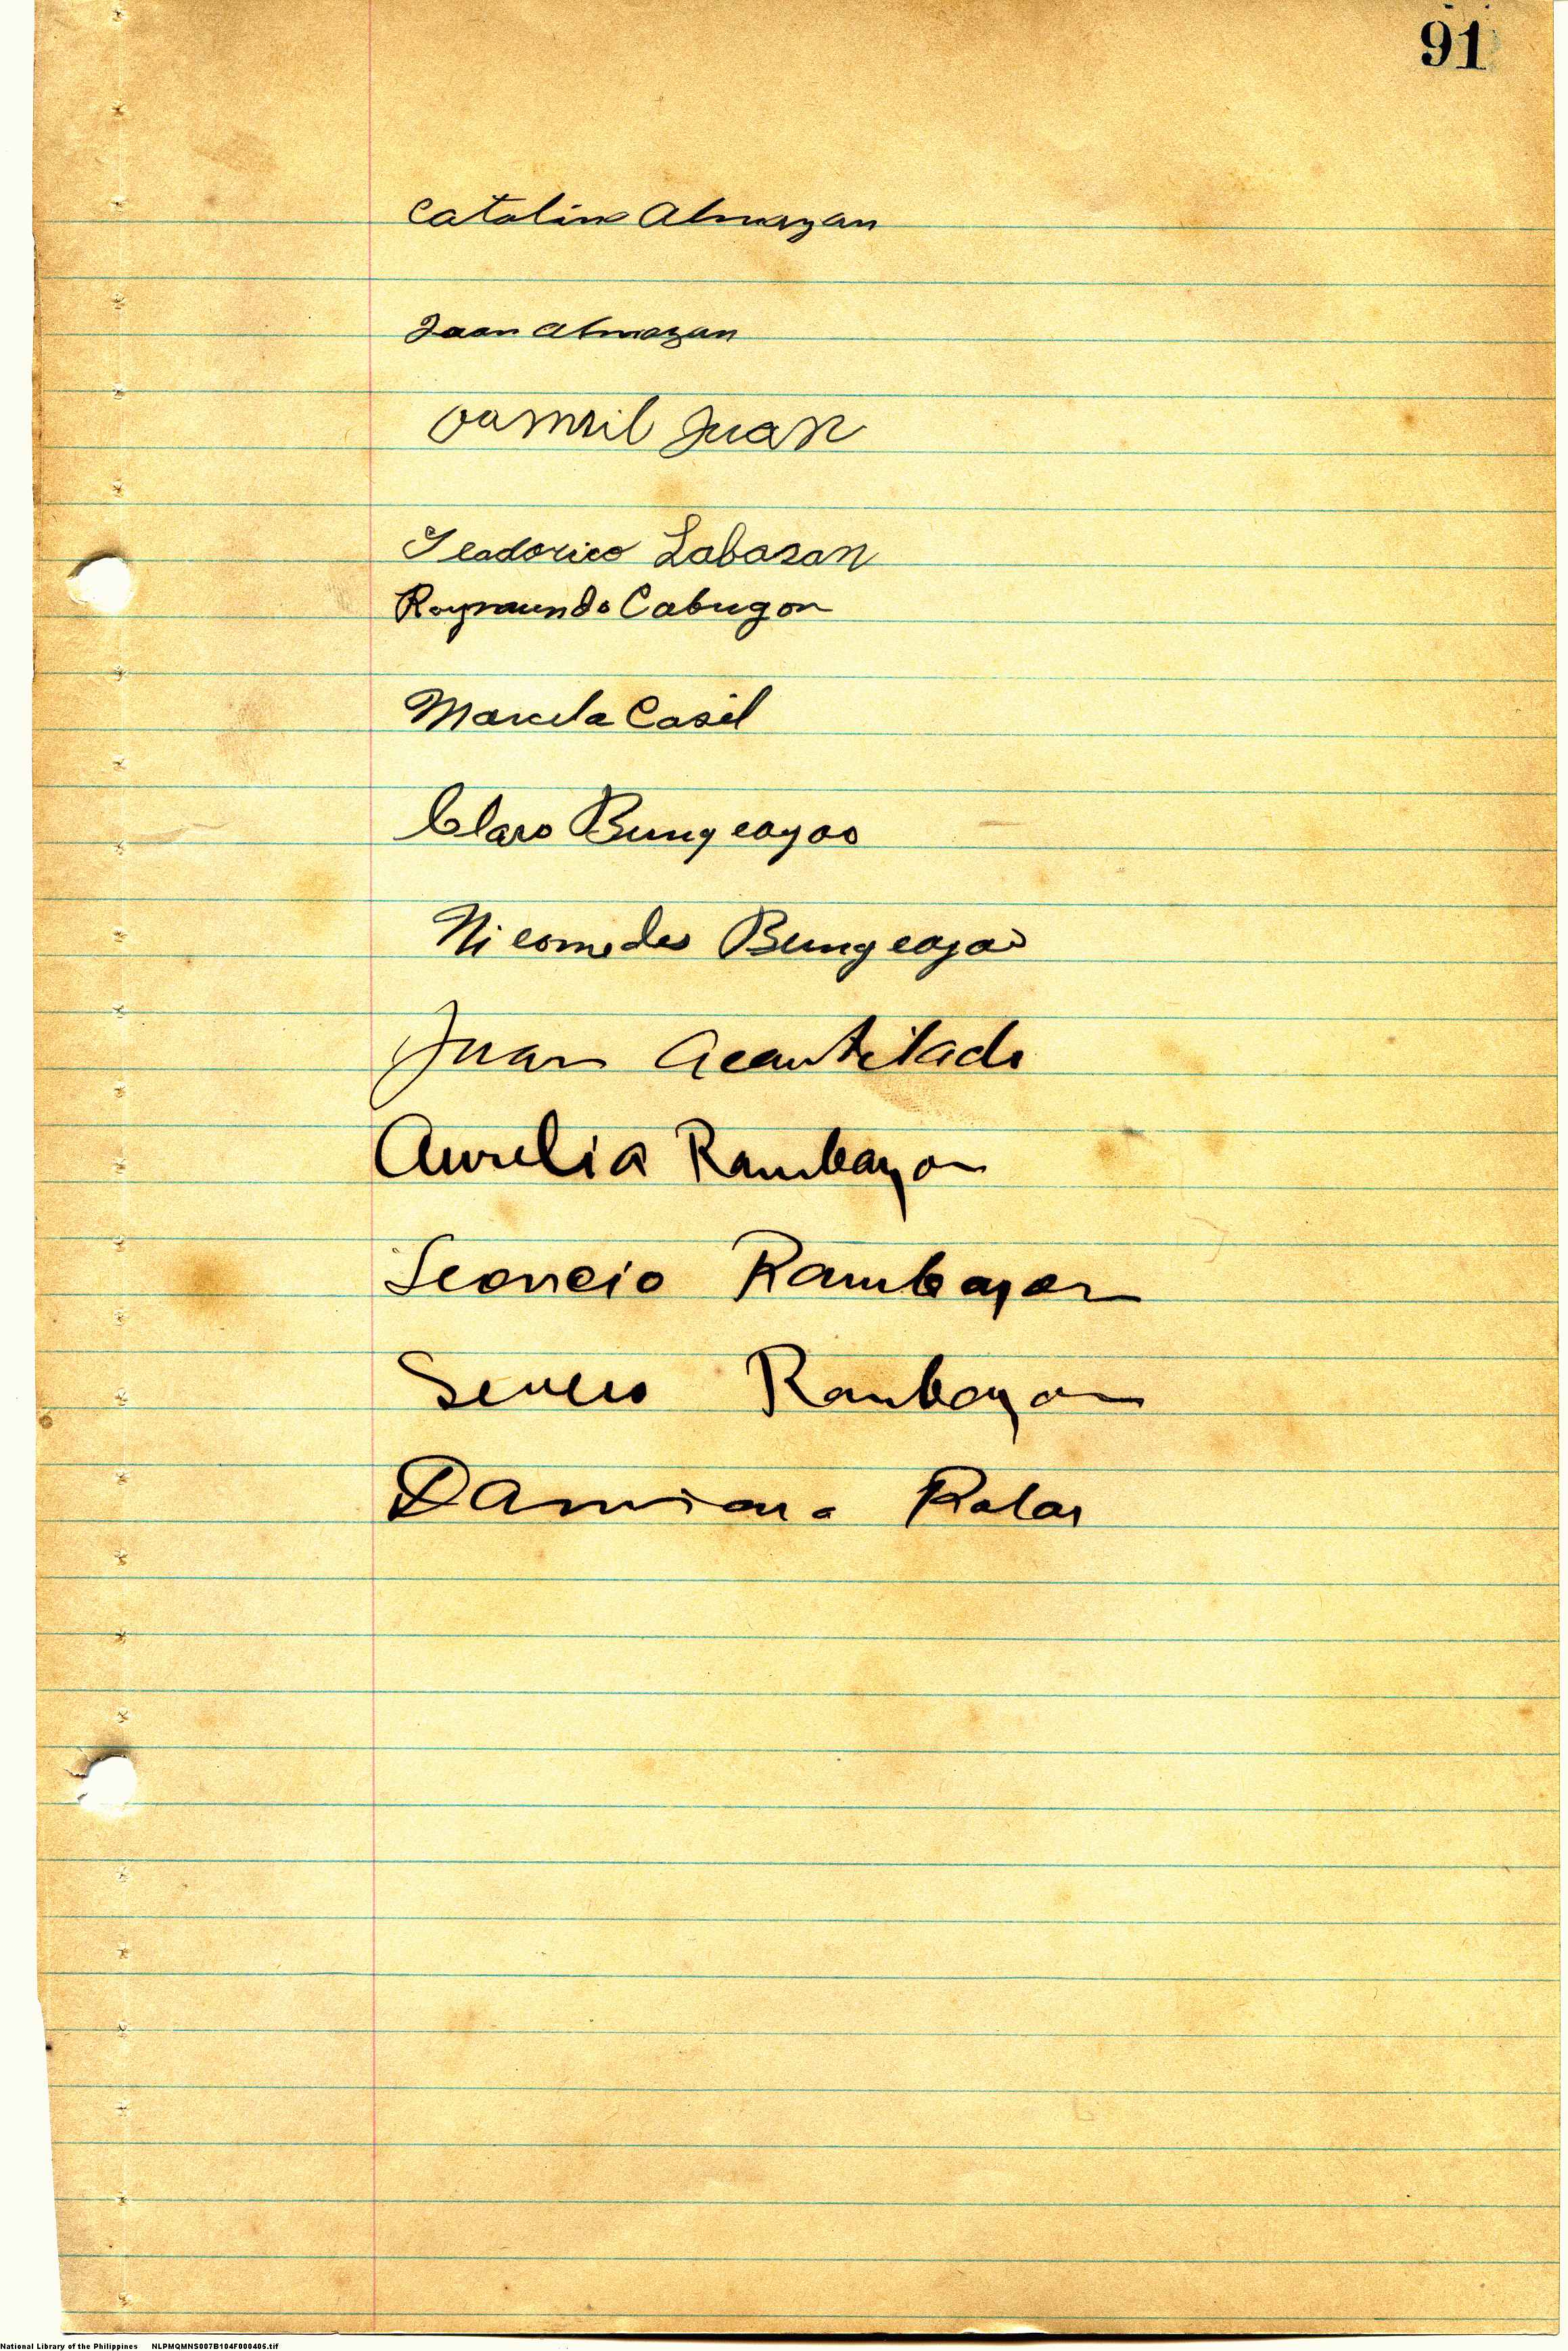 91
Catalina Almazan
Juan Almazan
Juan
Teadorico Labasan
Raymundo Cabugon
Marcela Casil
Claro Bungcayao
Nicomedes Bungcayao
Juan Acantilado
Aurelia Rambayon
Leoncio Rambayon
Severo Rambayon
Damiana
National Library of the Philippines NLPMQMNS007B104F000405.tif